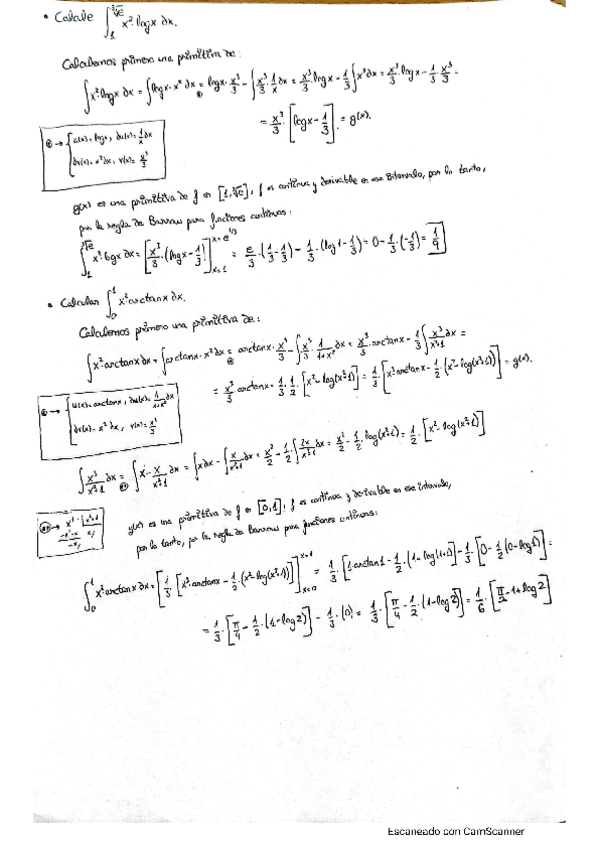 • Calcule ∫₁^{∛e} x² log x dx.
Calculemos primero una primitiva de:
∫x² log x dx = ∫log x · x² dx = log x · x³/3 − ∫ x³/3 · 1/x dx = x³/3 · log x − 1/3 ∫x² dx = x³/3 · log x − 1/3 · x³/3 =
= x³/3 · [log x − 1/3] = g(x).
u(x) = log x, du(x) = 1/x dx
dv(x) = x² dx, v(x) = x³/3
g(x) es una primitiva de f en [1, ∛e], f es continua y derivable en ese intervalo, por lo tanto,
por la regla de Barrow para funciones continuas:
∫₁^{∛e} x² log x dx = [x³/3 · (log x − 1/3)]_{x=1}^{x=e^{1/3}} = e/3 · (1/3 − 1/3) − 1/3 · (log 1 − 1/3) = 0 − 1/3 · (−1/3) = 1/9
• Calcular ∫₀¹ x² arctan x dx.
Calculemos primero una primitiva de:
∫x² arctan x dx = ∫arctan x · x² dx = arctan x · x³/3 − ∫ x³/3 · 1/1+x² dx = x³/3 · arctan x − 1/3 ∫ x³/x²+1 dx =
= x³/3 arctan x − 1/3 · 1/2 · [x² − log(x²+1)] = 1/3 · [x³ arctan x − 1/2 · (x² − log(x²+1))] = g(x).
u(x) = arctan x, du(x) = 1/1+x² dx
dv(x) = x² dx, v(x) = x³/3
∫ x³/x²+1 dx = ∫ x − x/x²+1 dx = ∫x dx − ∫ x/x²+1 dx = x²/2 − 1/2 · ∫ 2x/x²+1 dx = x²/2 − 1/2 · log(x²+1) = 1/2 · [x² − log(x²+1)]
g(x) es una primitiva de f en [0,1], f es continua y derivable en ese intervalo,
por lo tanto, por la regla de Barrow para funciones continuas:
∫₀¹ x² arctan x dx = [1/3 · [x³ arctan x − 1/2 · (x² − log(x²+1))]]_{x=0}^{x=1} = 1/3 · [1·arctan 1 − 1/2 · (1 − log(1+1))] − 1/3 · [0 − 1/2 (0 − log 1)] =
= 1/3 · [π/4 − 1/2 · (1 − log 2)] − 1/3 · (0) = 1/3 · [π/4 − 1/2 · (1 − log 2)] = 1/6 · [π/2 − 1 + log 2]
Escaneado con CamScanner